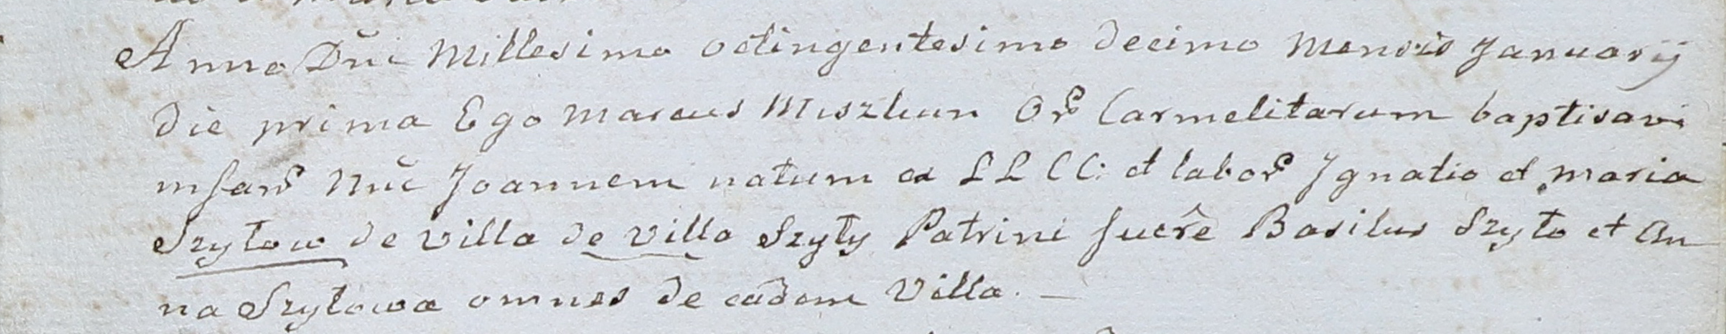 Anno Dñi Millesimo octingentesimo decimo Mensis Januarij
Die prima Ego Marcus Miszkun Ord Carmelitarum baptisavi
infan Nñe Joannem natum ex LL CC: et labor Ignatio et Maria
Szyłow de villa de villa Szyły Patrini fuerê Basilus Szyło et An
na Szyłowa omnes de eadem Villa. —